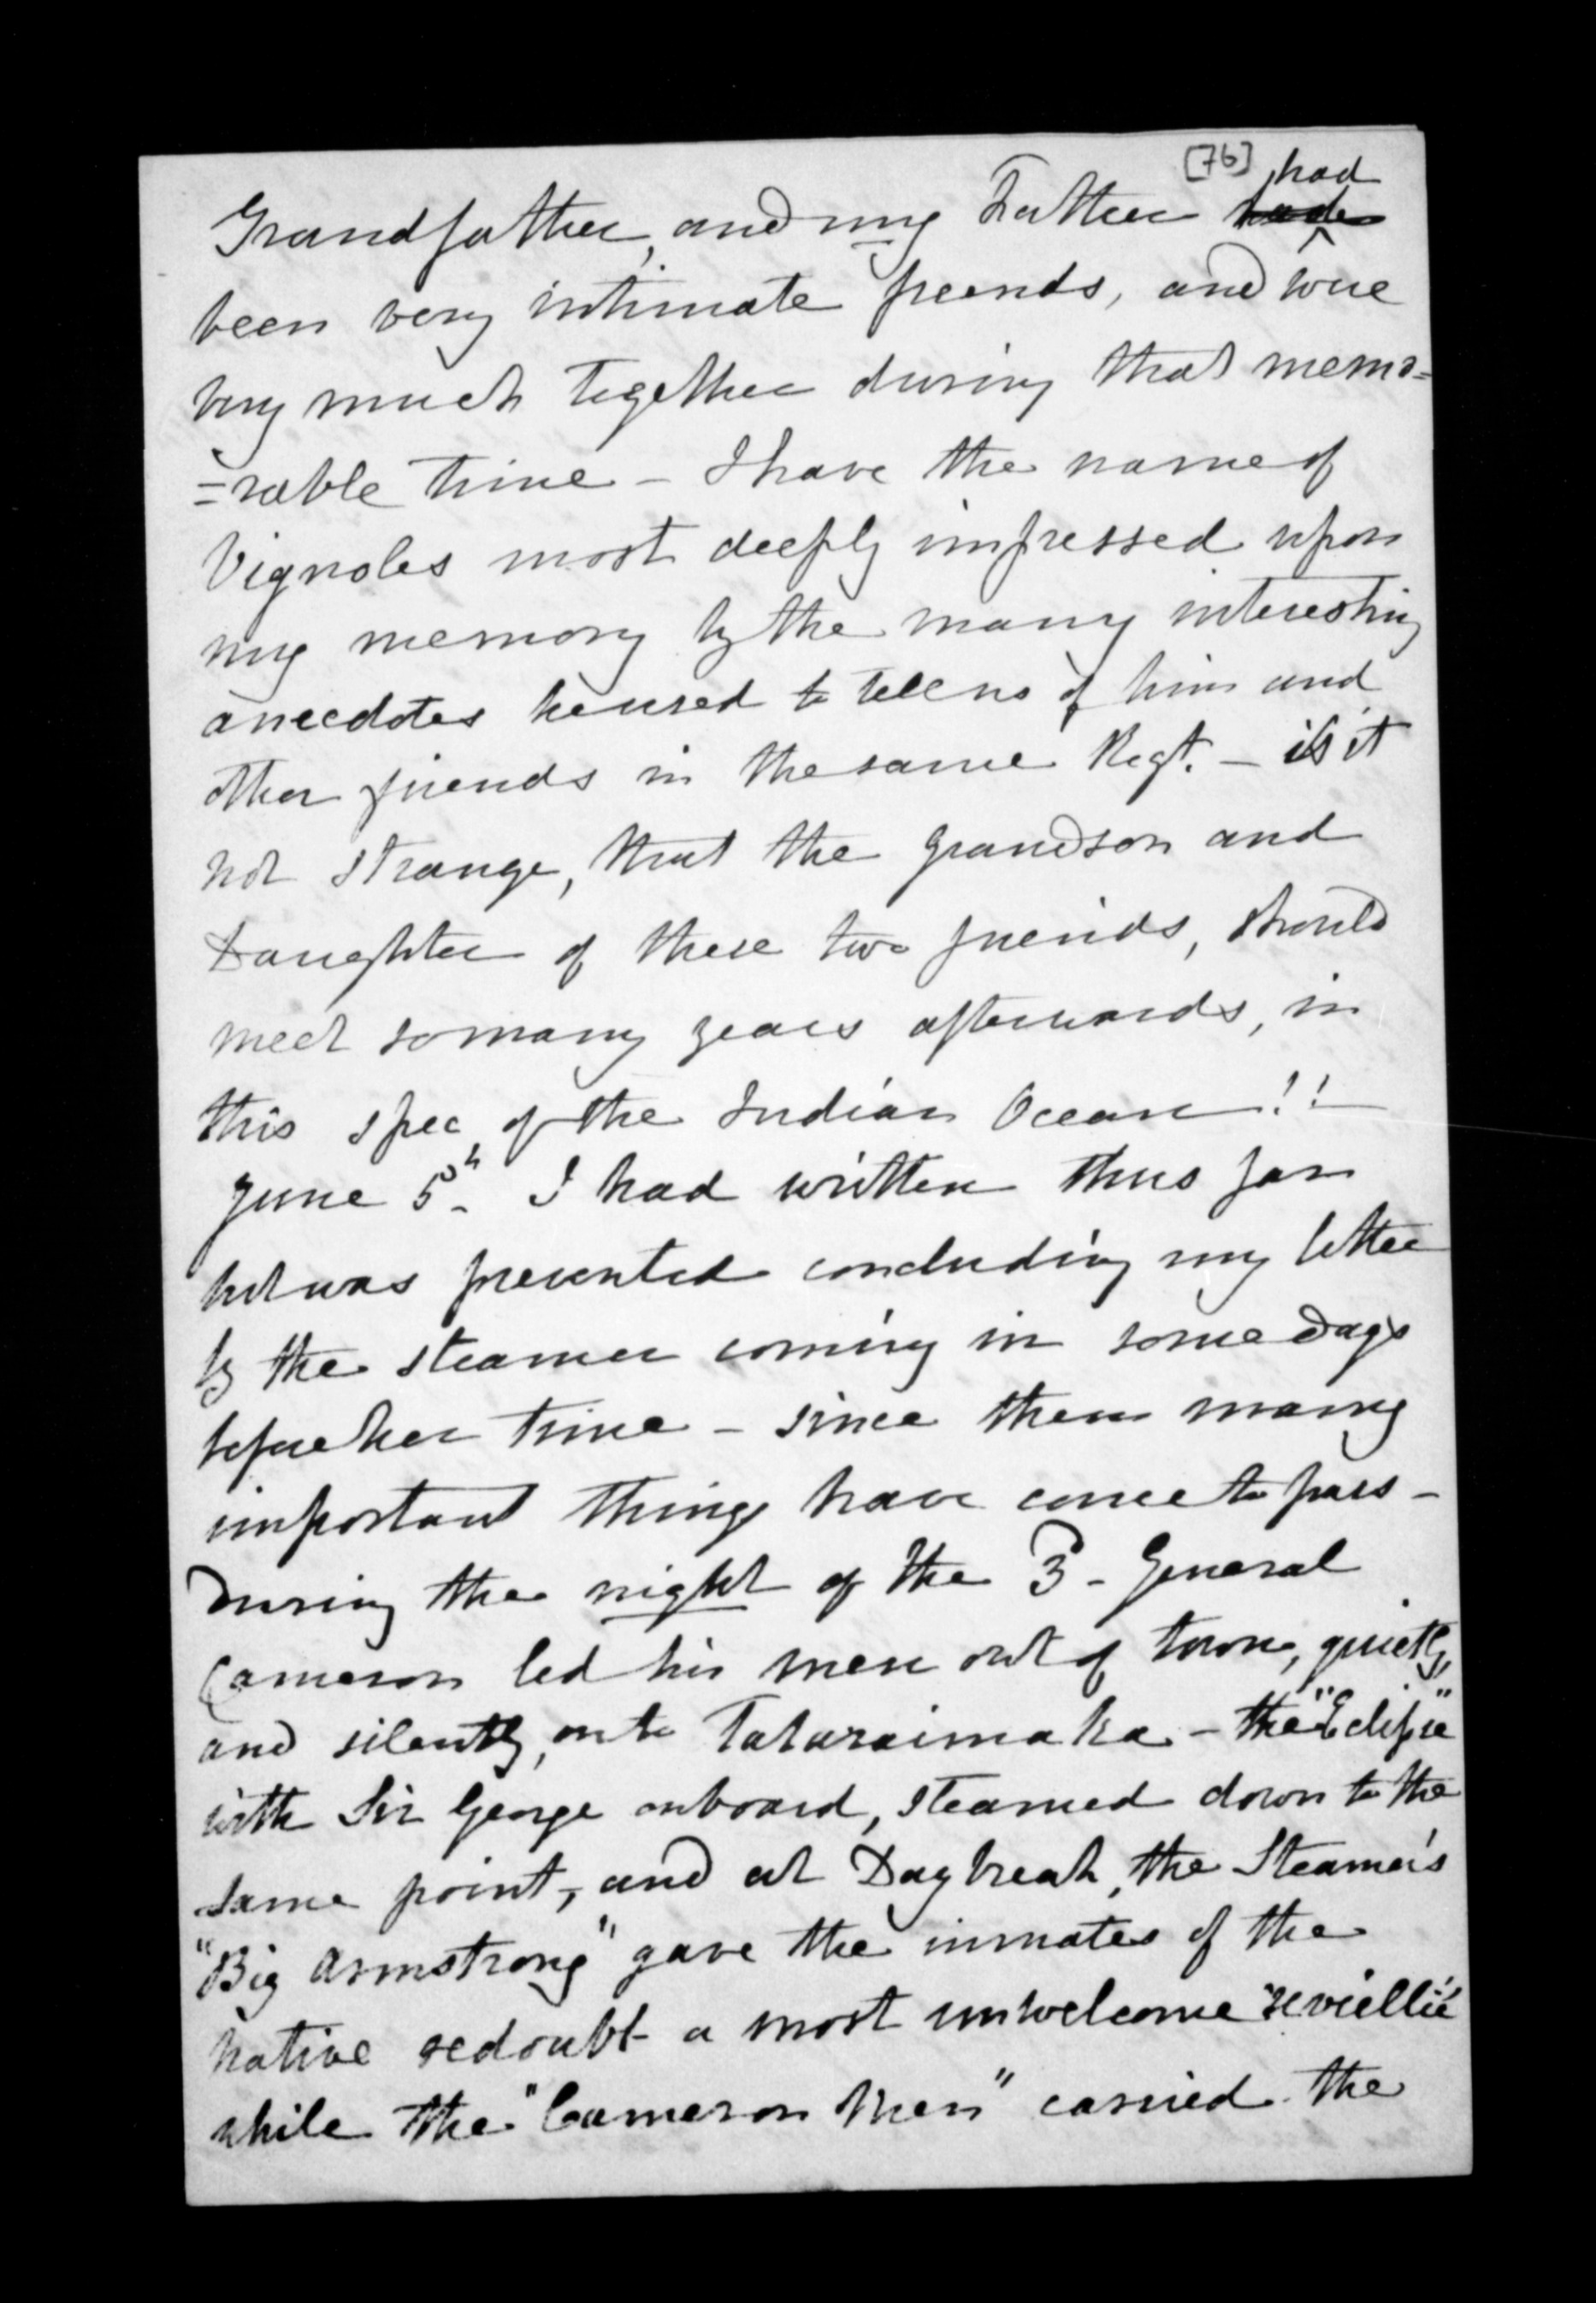 [76] had
Grandfather, and my Father hade
been very intimate friends, and were
very much together during that memo=
=rable time - I have the name of
Vignoles most deeply impressed upon
my memory by the many interesting
anecdotes he used to tell us of him and
other friends in the same Regt. - is it
not strange, that the Grandson and
Daughter of these two friends, should
meet so many years afterwards, in
this spec, of the Indian Ocean!!
June 5th I had written thus far
but was prevented concluding my letter
by the steamer coming in some days
before her time - since then many
important things have come to pass -
During the night of the 3 - General
Cameron led his men out of town, quietly,
and silently, on to Tataraimaka - the "Eclipse"
with Sir George on board, steamed down to the
same point, and at Daybreak, the Steamer's
"Big Armstrong" gave the inmates of the
native redoubt a most unwelcome "reviellié"
while the "Cameron Men" carried the